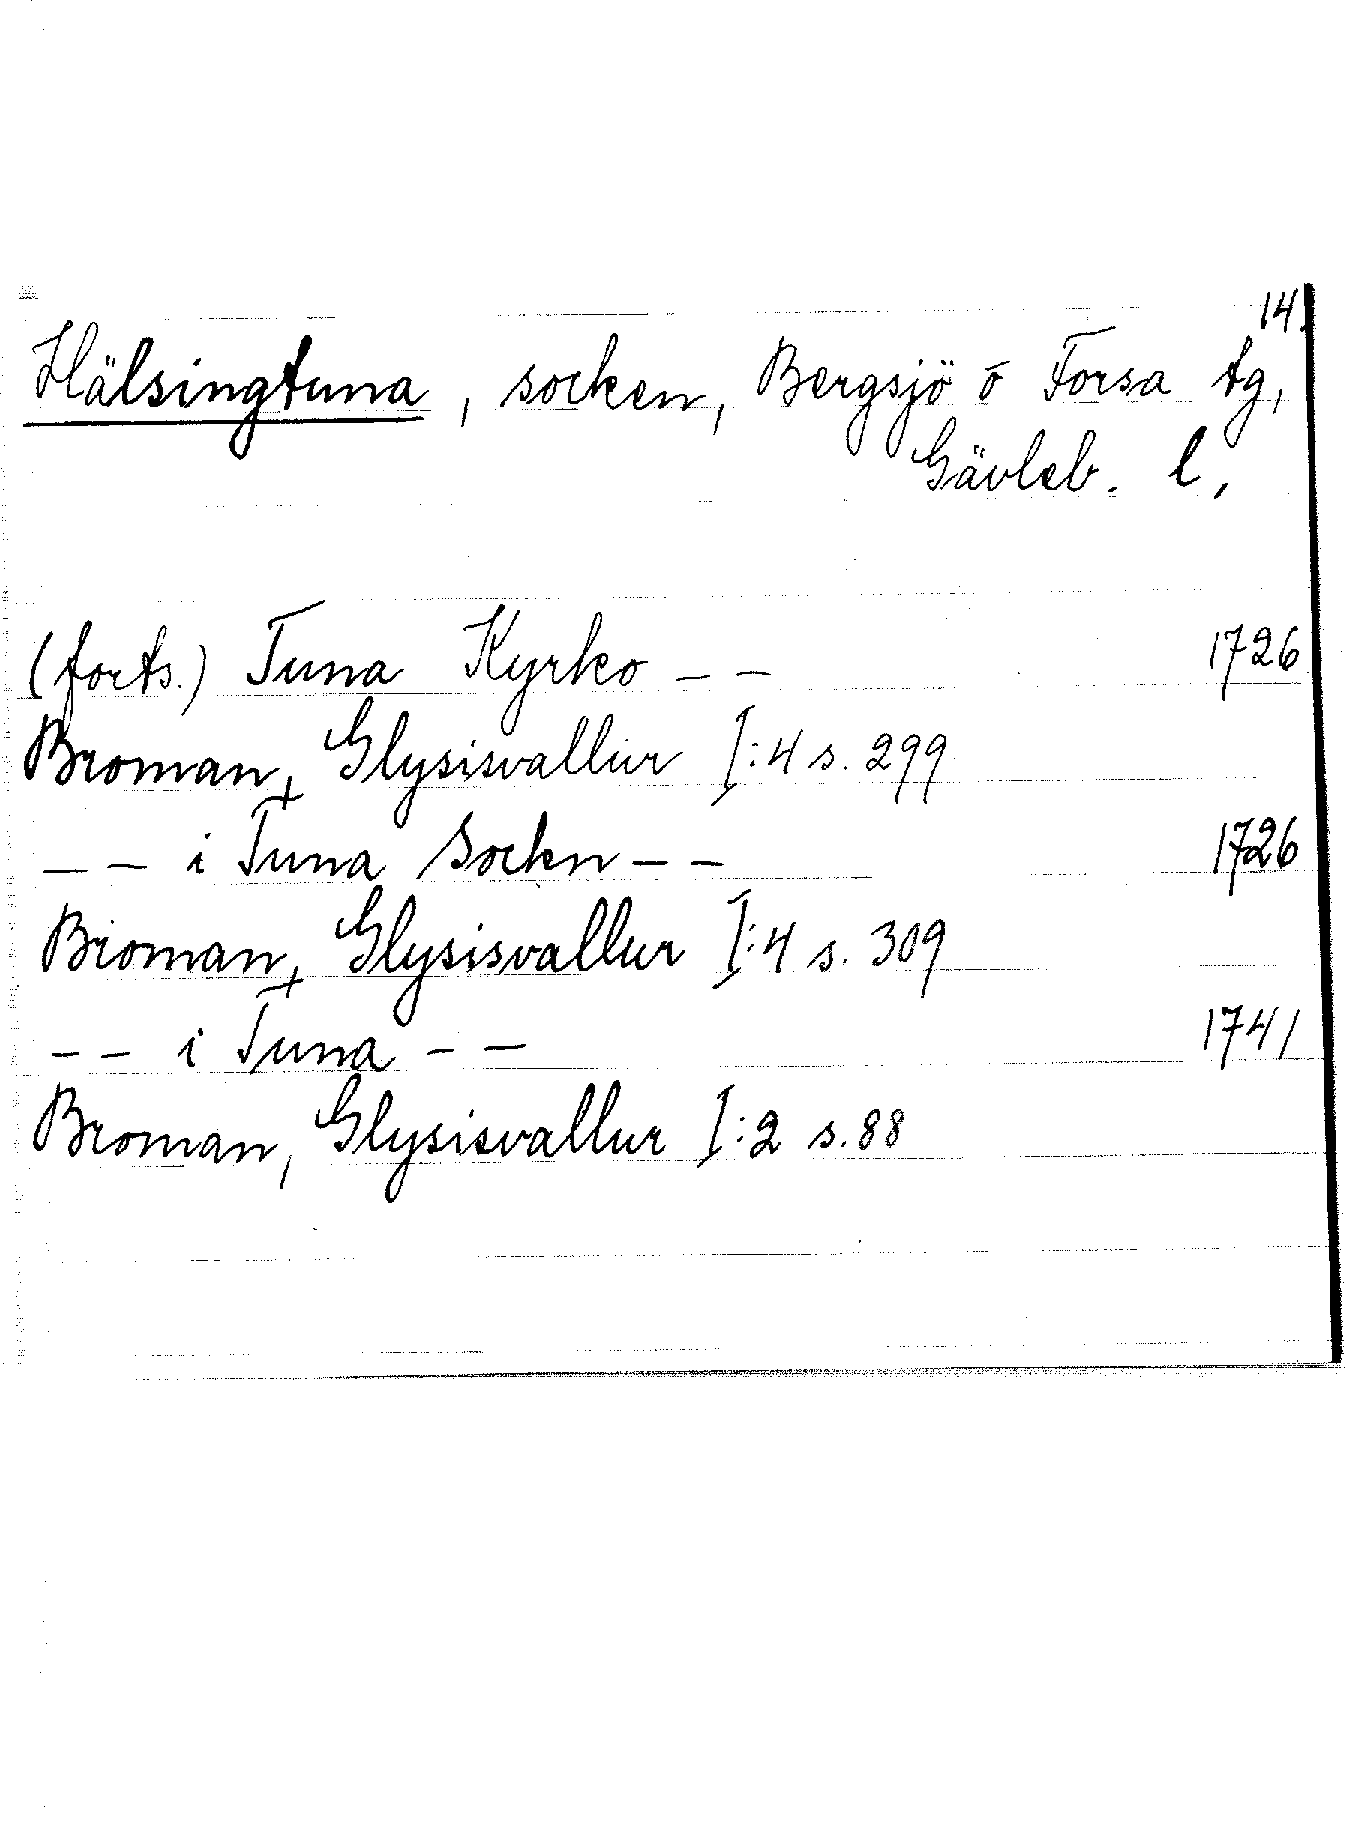 14.
Hälsingtuna, socken, Bergsjö o Forsa tg,
Gävleb. l,
(forts.) Tuna Kyrko – – 1726
Broman, Glysisvallur I:4 s. 299
– – i Tuna Sockn – – 1726
Broman, Glysisvallur I:4 s. 309
– – i Tuna – – 1741
Broman, Glysisvallur I:2 s. 88